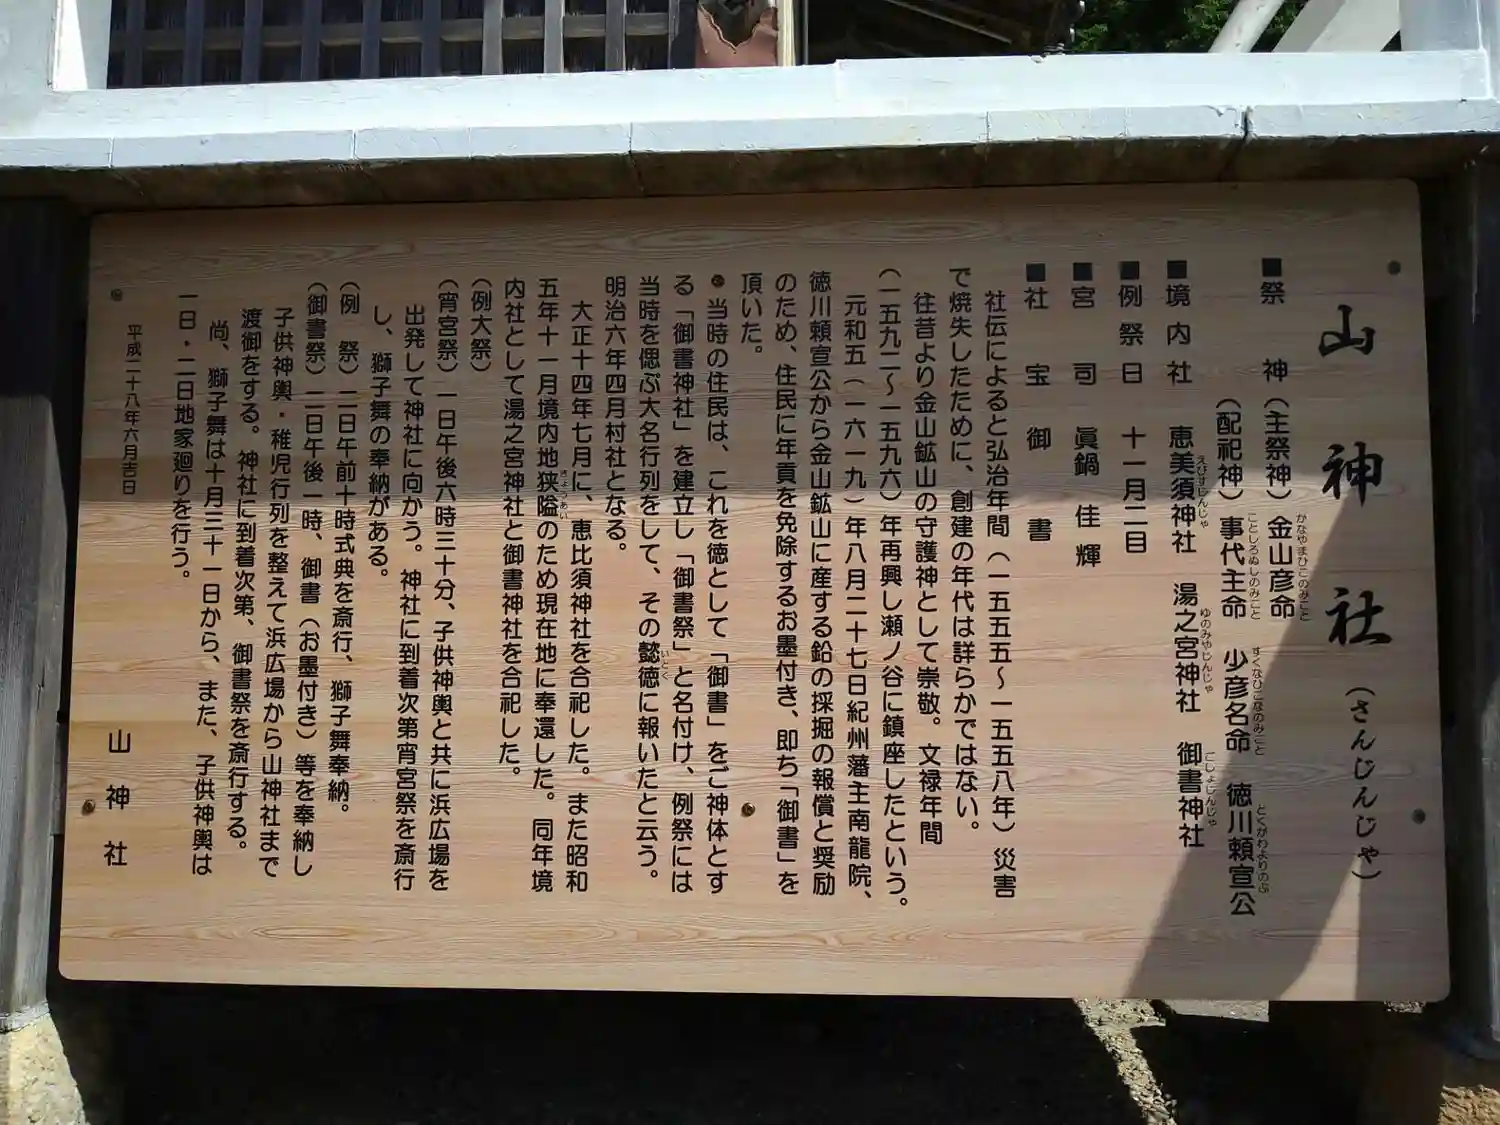 山神社（さんじんじゃ）
■祭　神（主祭神）金山彦命
かなやまひこのみこと
（配祀神）事代主命　少彦名命　徳川頼宣公
ことしろぬしのみこと　すくなひこなのみこと　とくがわよりのぶ
■境内社　恵美須神社　湯之宮神社　御書神社
えびすじんじゃ　ゆのみやじんじゃ　ごしょじんじゃ
■例祭日　十一月二日
■宮　司　眞鍋佳輝
■社　宝　御　書
社伝によると弘治年間（一五五五〜一五五八年）災害
で焼失したために、創建の年代は詳らかではない。
往昔より金山鉱山の守護神として崇敬。文禄年間
（一五九二〜一五九六）年再興し瀬ノ谷に鎮座したという。
元和五（一六一九）年八月二十七日紀州藩主南龍院、
徳川頼宣公から金山鉱山に産する鉛の採掘の報償と奨励
のため、住民に年貢を免除するお墨付き、即ち「御書」を
頂いた。
当時の住民は、これを徳として「御書」をご神体とす
る「御書神社」を建立し「御書祭」と名付け、例祭には
当時を偲ぶ大名行列をして、その懿徳に報いたと云う。
いとく
明治六年四月村社となる。
大正十四年七月に、恵比須神社を合祀した。また昭和
五年十一月境内地狭隘のため現在地に奉還した。同年境
きょうあい
内社として湯之宮神社と御書神社を合祀した。
（例大祭）
（宵宮祭）一日午後六時三十分、子供神輿と共に浜広場を
出発して神社に向かう。神社に到着次第宵宮祭を斎行
し、獅子舞の奉納がある。
（例　祭）二日午前十時式典を斎行、獅子舞奉納。
（御書祭）二日午後一時、御書（お墨付き）等を奉納し
子供神輿・稚児行列を整えて浜広場から山神社まで
渡御をする。神社に到着次第、御書祭を斎行する。
尚、獅子舞は十月三十一日から、また、子供神輿は
一日・二日地家廻りを行う。
平成二十八年六月吉日
山神社